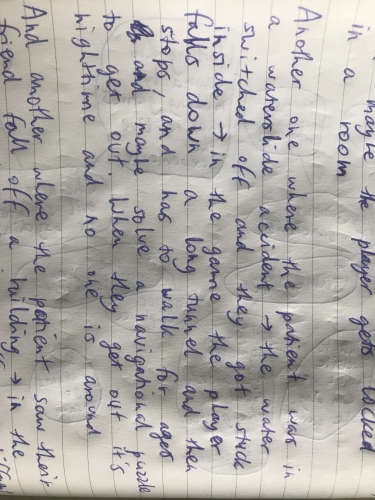 maybe the player gets locked
in a room
Another one where the patient was in
a waterslide accident → the water
switched off and they got stuck
inside → in the game the player
falls down a long tunnel and then
stops, and has to walk for ages
and maybe solve a navigational puzzle
to get out. When they get out it's
nighttime and no one is around
And another where the patient saw their
friend fall off a building → in the